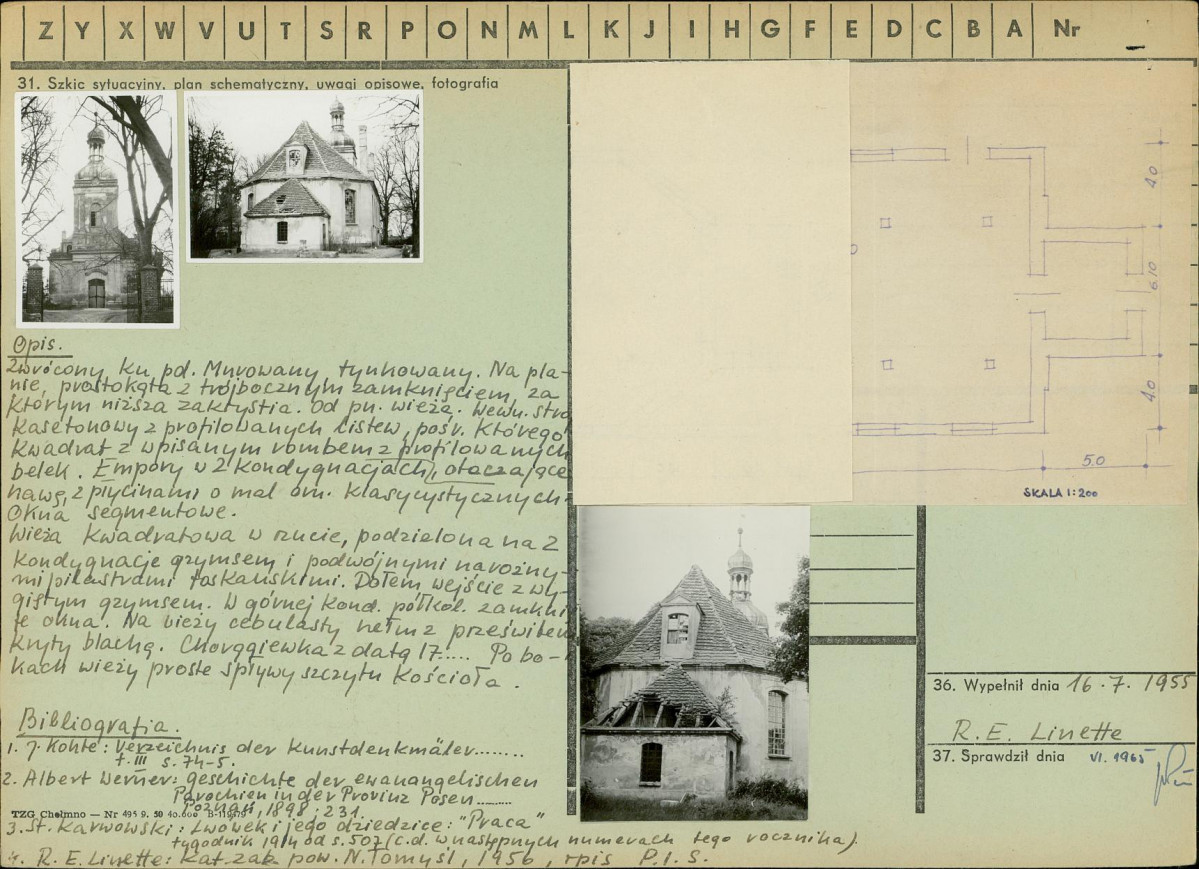 Z Y X W V U T S R P O N M L K J I H G F E D C B A Nr
31. Szkic sytuacyjny, plan schematyczny, uwagi opisowe, fotografia
4.0
6.10
4.0
5.0
SKALA 1:200
Opis.
Zwrócony ku pd. Murowany, tynkowany. Na pla-
nie, prostokąta z trójbocznym zamknięciem, za
którym niższa zakrystia. Od pn. wieża. Wewn. stro
kasetonowy z profilowanych listew, pośr. którego
kwadrat z wpisanym rombem z profilowanych
belek. Empory w 2 kondygnacjach, otaczające
nawę, z płycinami o mal. orn. klasycystycznych.
Okna segmentowe.
Wieża kwadratowa w rzucie, podzielona na 2
kondygnacje gzymsem i podwójnymi narożny-
mi pilastrami toskańskimi. Dołem wejście z wy-
giętym gzymsem. W górnej kond. półkol. zamkni
te okna. Na wieży cebulasty hełm z prześwitem
kryty blachą. Chorągiewka z datą 17..... Po bo-
kach wieży proste spływy szczytu kościoła.
Bibliografia.
1. J. Kohte: Verzeichnis der Kunstdenkmäler........
t. III s. 74-5.
2. Albert Werner: Geschichte der ewanangelischen
Parochien in der Provinz Posen.........
Poznań, 1898, 231.
TZG Chełmno — Nr 495 9. 59 40.000 B-1198/9
3. St. Karwowski: Lwówek i jego dziedzice: "Praca"
tygodnik 1914 od s. 507 (c.d. w następnych numerach tego rocznika).
4. R. E. Linette: Kat. zab. pow. N. Tomyśl, 1956, rpis P.I.S.
36. Wypełnił dnia 16.7.1955
R. E. Linette
37. Sprawdził dnia VI. 1965